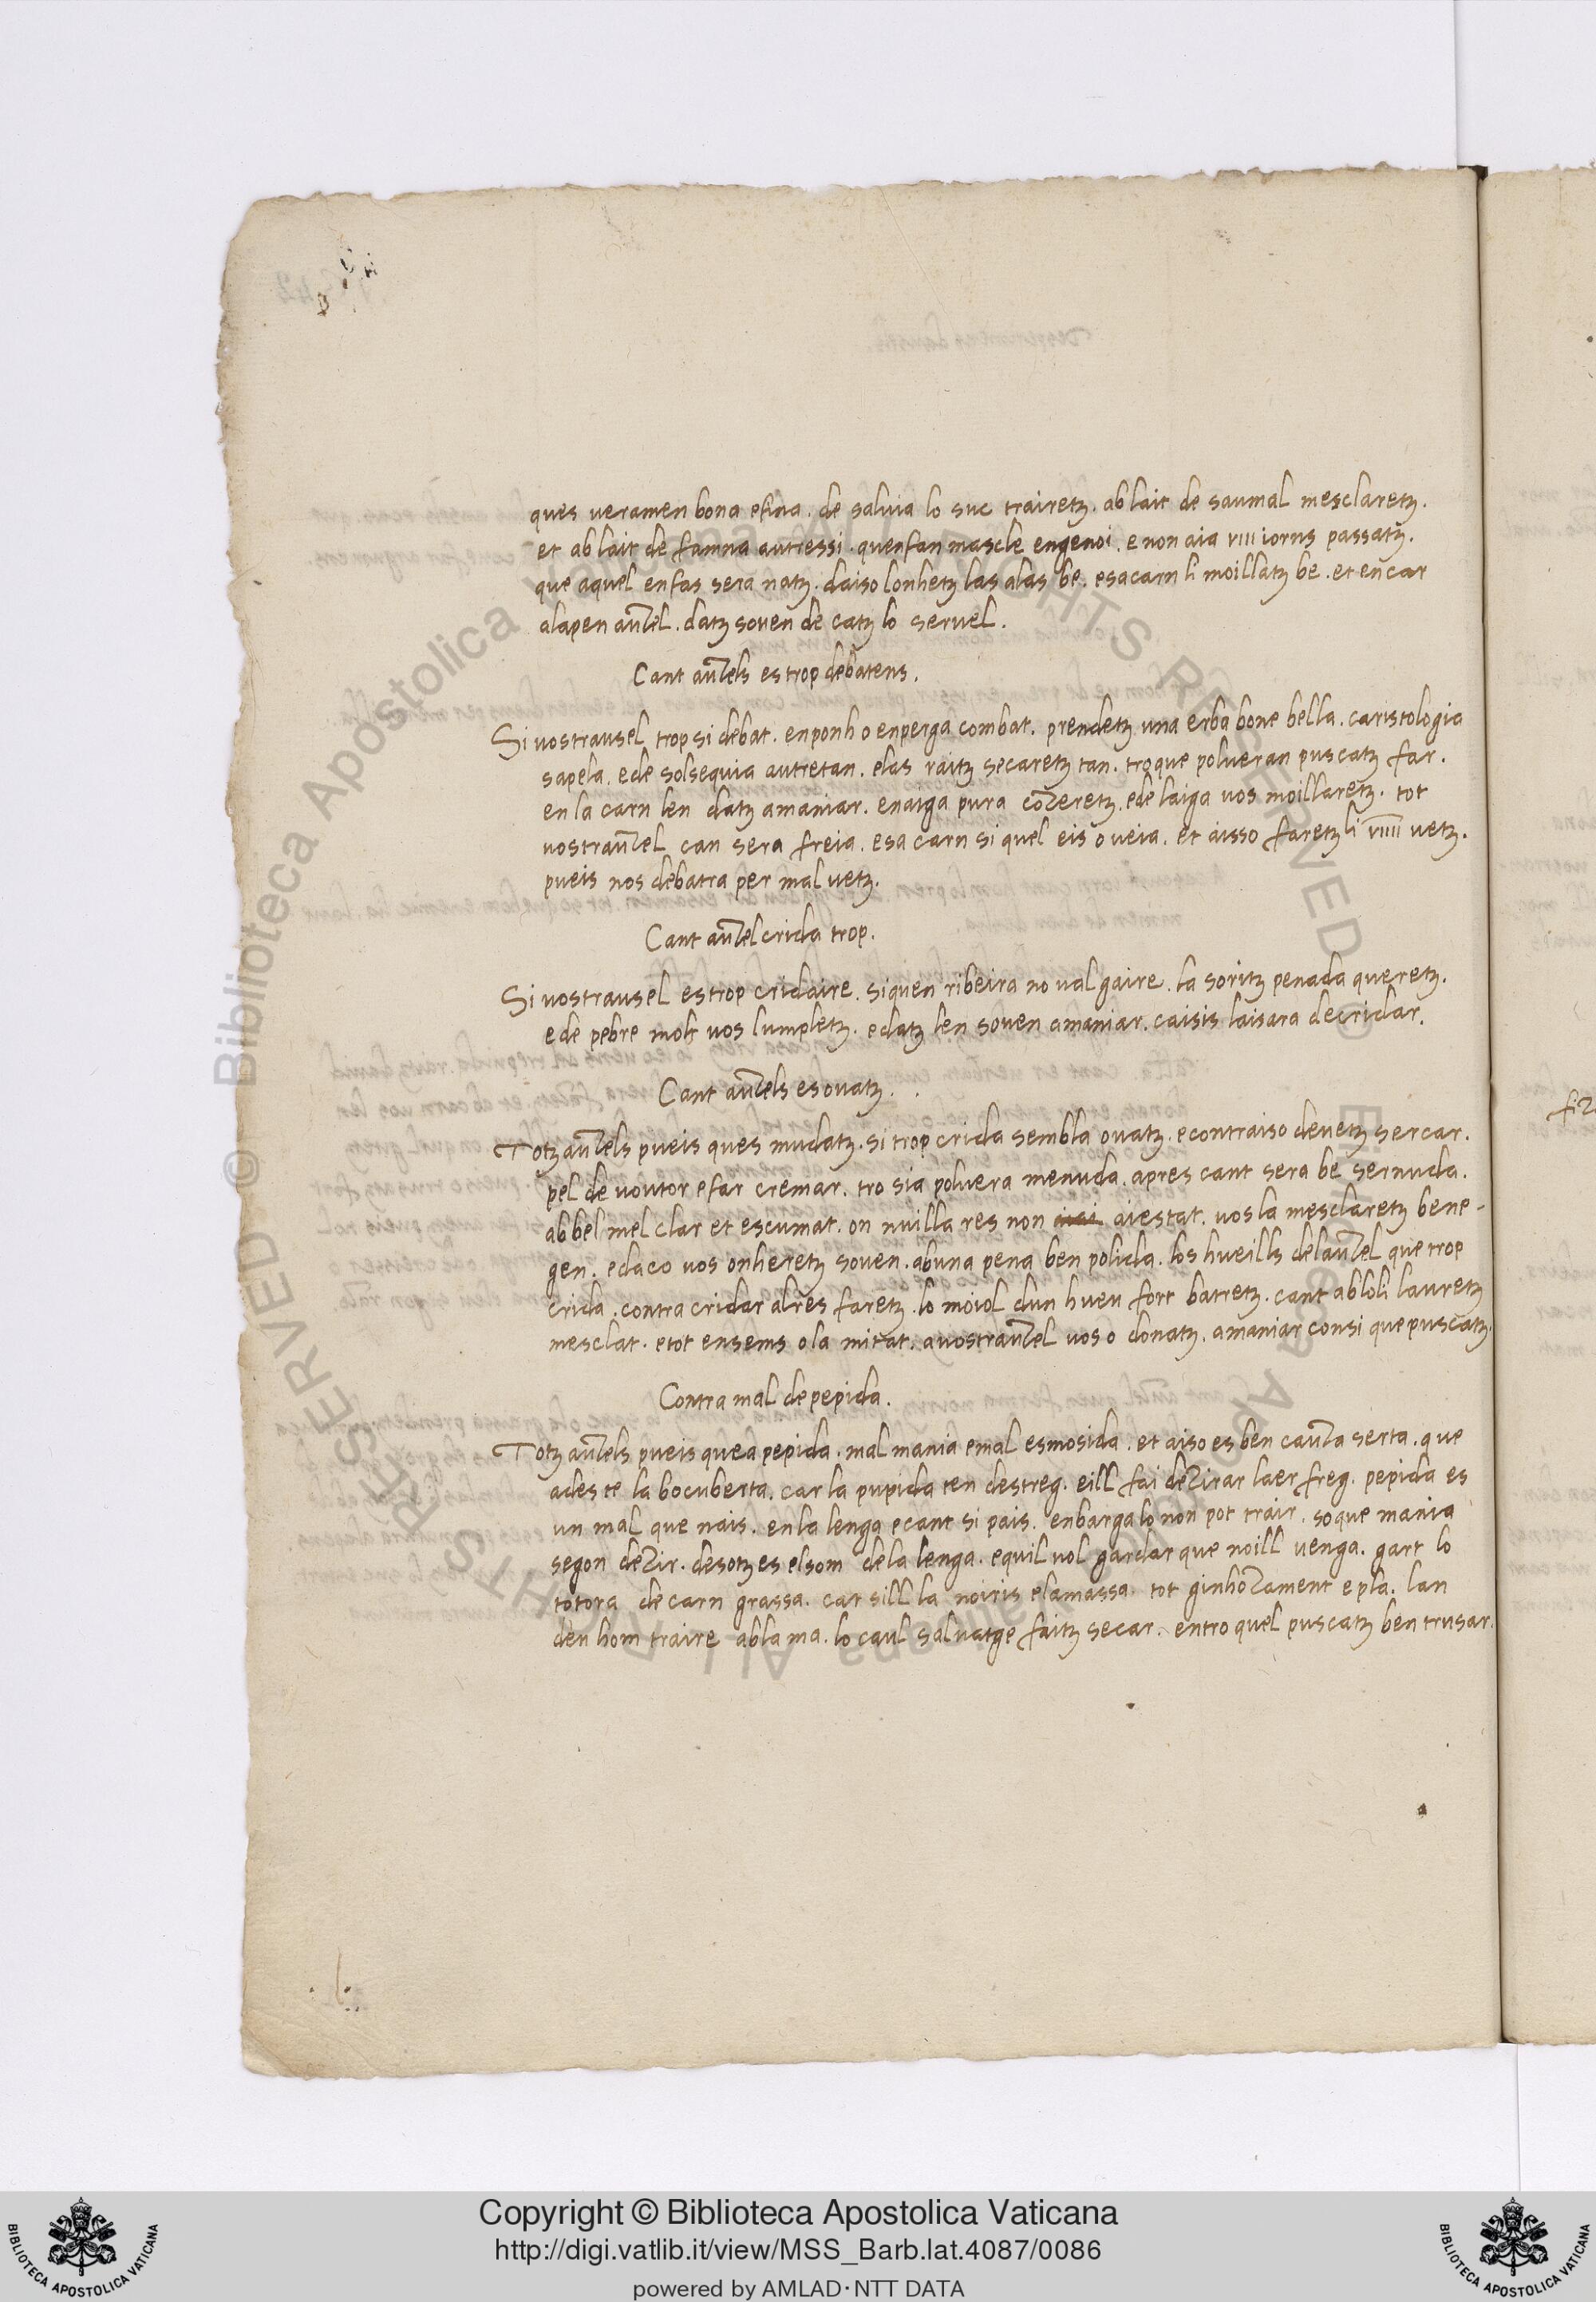 ques veramen bona efina. de saluia lo suc trairetz. ab lait de saumal mesclaretz.
et ab lait de famna autressi. quenfan mascle engenoi. e non aia viiii iorns passatz.
que aquel enfas sera natz. daiso lonhetz las alas be. esacarn li moillatz be. et encar
alapen auzel. datz soven de catz lo servel.
Cant auzels es trop debatens.
Si vostrausel trop si debat. enponh o enperga combat. prendetz una erba bone bella. caristologia
sapela. ede solsequia autretan. elas raitz secaretz tan. tro que polveran puscatz far.
en la carn len datz amaniar. enaiga pura cozeretz. ede laiga vos moillaretz. tot
vostrauzel can sera freia. esa carn si quel eis o veia. et aisso faretz li viiii vetz.
pueis nos debatra per mal vetz.
Cant auzel crida trop.
Si vostrausel es trop cridaire. siquen ribeira no val gaire. la soritz penada queretz.
e de pebre molt vos lumpletz. edatz len soven amaniar. caisis laisara decridar.
Cant auzels es ovatz.
Totz auzels pueis ques mudatz. si trop crida sembla ovatz. econtraiso devetz sercar.
pel de voutor efar cremar. tro sia polvera menuda. apres cant sera be sernuda.
ab bel mel clar et escumat. on nuilla res non aiestat. vos la mesclaretz bene-
gen. edaco vos onheretz soven. abuna pena ben polida. los hueills delauzel que trop
crida. contra cridar alres faretz. lo moiol dun hueu fort batretz. cant abloli lauretz
mesclat. etot ensems o la mitat. avostrauzel vos o donatz. amaniar consi que puscatz.
Contra mal de pepida.
Totz auzels pueis quea pepida. mal mania emal esmosida. et aiso es ben cauza serta. que
ades te la bocuberta. car la pupida ten destreg. eill fai dezirar laer freg. pepida es
un mal que nais. en la lenga ecant si pais. enbargalo non pot trair. so que mania
segon dezir. desotz es elsom de la lenga. equil vol gardar que noill venga. gart lo
totora de carn grassa. car sill la noiris elamassa. tot ginhozament e pla. lan
den hom traire abla ma. lo caul salvatge faitz secar. entro quel puscatz ben trusar.
Copyright © Biblioteca Apostolica Vaticana
http://digi.vatlib.it/view/MSS_Barb.lat.4087/0086
powered by AMLAD·NTT DATA